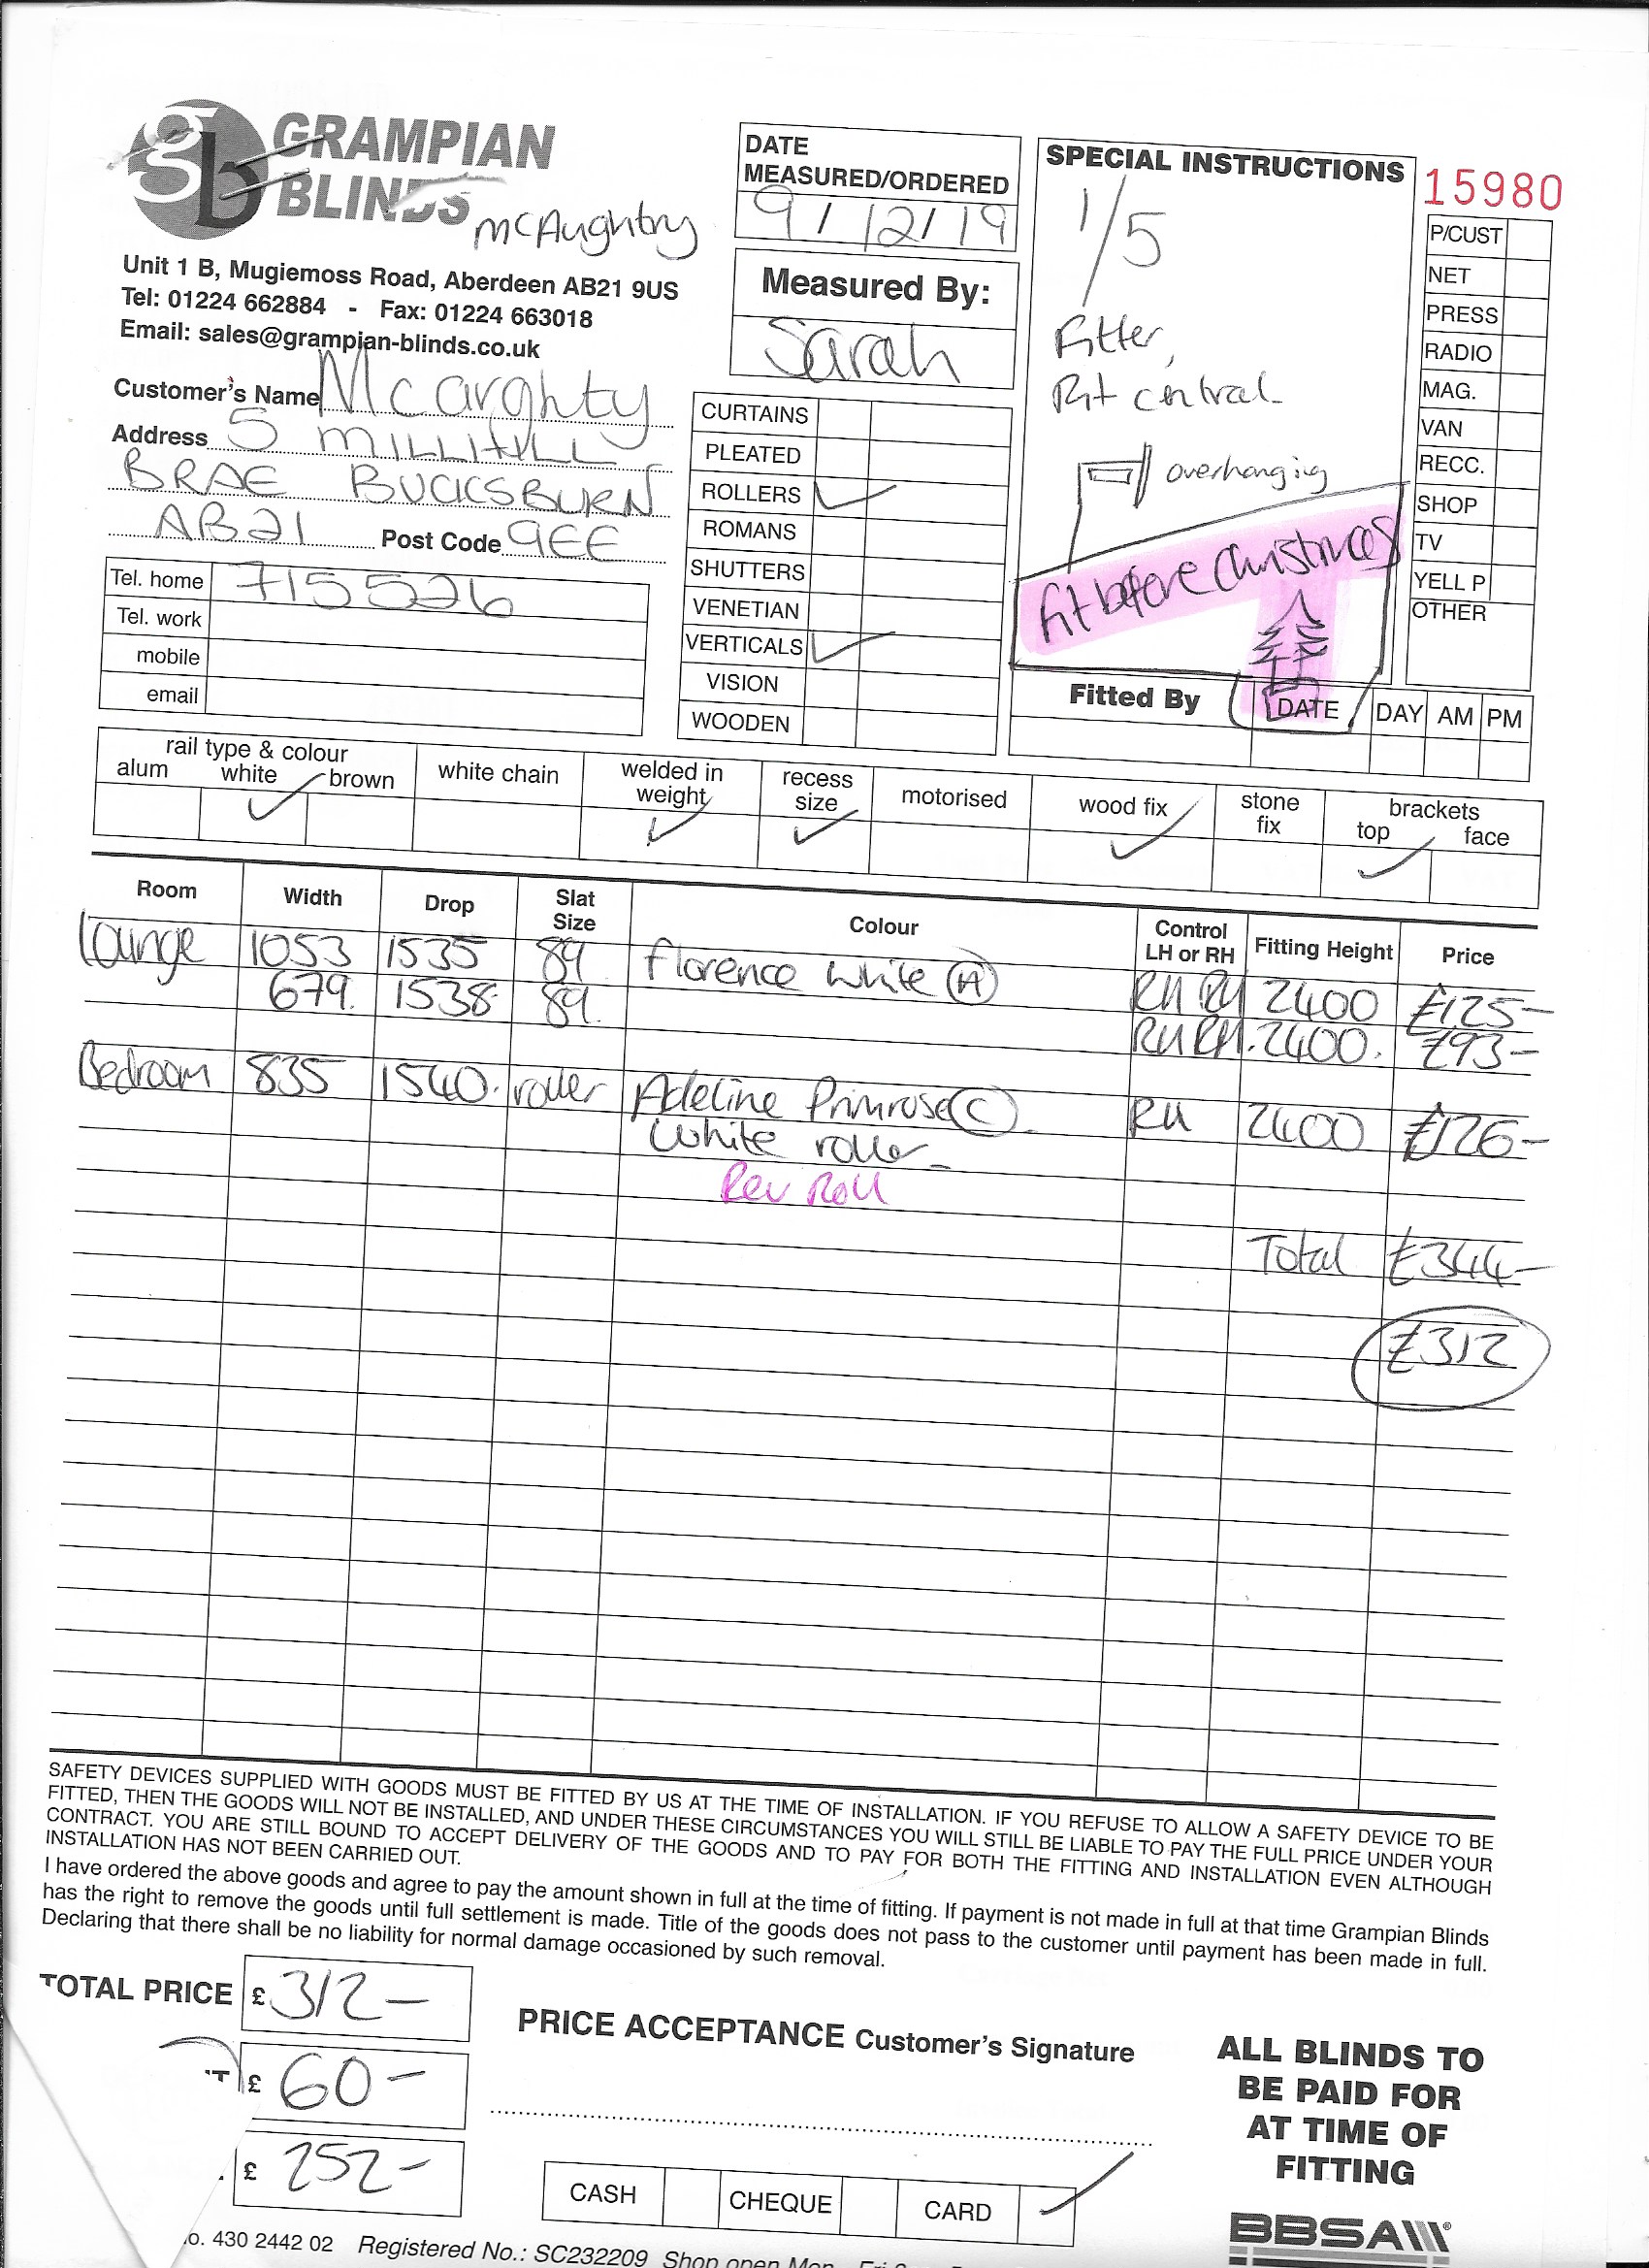 GRAMPIAN
BLINDS
McAughtry
Unit 1 B, Mugiemoss Road, Aberdeen AB21 9US
Tel: 01224 662884 - Fax: 01224 663018
Email: sales@grampian-blinds.co.uk
Customer's Name Mcarghty
Address 5 MILLHILL
BRAE BUCKSBURN
AB21 Post Code 9EE
Tel. home 715526
Tel. work
mobile
email
DATE
MEASURED/ORDERED
9/12/19
Measured By:
Sarah
CURTAINS
PLEATED
ROLLERS ✓
ROMANS
SHUTTERS
VENETIAN
VERTICALS ✓
VISION
WOODEN
SPECIAL INSTRUCTIONS
1/5
Fitter,
Pit central
overhanging
fit before Christmas
15980
P/CUST
NET
PRESS
RADIO
MAG.
VAN
RECC.
SHOP
TV
YELL P
OTHER
Fitted By DATE DAY AM PM
rail type & colour
alum white ✓ brown white chain welded in weight ✓ recess size ✓ motorised wood fix ✓ stone fix brackets top ✓ face
Room Width Drop Slat Size Colour Control LH or RH Fitting Height Price
Lounge 1053 1535 89 florence white (A) RH RH 2400 £125-
679. 1538. 89. RH RH. 2400. £93-
Bedroom 835 1540. roller Adeline Primrose (C) RH 2400 £126-
White roller
Rev Roll
Total £344-
£312
SAFETY DEVICES SUPPLIED WITH GOODS MUST BE FITTED BY US AT THE TIME OF INSTALLATION. IF YOU REFUSE TO ALLOW A SAFETY DEVICE TO BE
FITTED, THEN THE GOODS WILL NOT BE INSTALLED, AND UNDER THESE CIRCUMSTANCES YOU WILL STILL BE LIABLE TO PAY THE FULL PRICE UNDER YOUR
CONTRACT. YOU ARE STILL BOUND TO ACCEPT DELIVERY OF THE GOODS AND TO PAY FOR BOTH THE FITTING AND INSTALLATION EVEN ALTHOUGH
INSTALLATION HAS NOT BEEN CARRIED OUT.
I have ordered the above goods and agree to pay the amount shown in full at the time of fitting. If payment is not made in full at that time Grampian Blinds
has the right to remove the goods until full settlement is made. Title of the goods does not pass to the customer until payment has been made in full.
Declaring that there shall be no liability for normal damage occasioned by such removal.
TOTAL PRICE £ 312-
T £ 60-
£ 252-
PRICE ACCEPTANCE Customer's Signature
CASH CHEQUE CARD ✓
ALL BLINDS TO
BE PAID FOR
AT TIME OF
FITTING
BBSA
o. 430 2442 02 Registered No.: SC232209 Shop open Mon